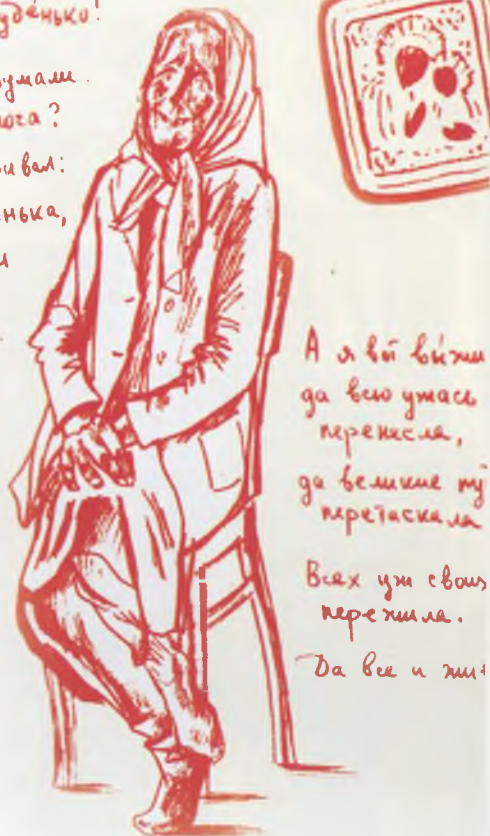 уде́нько!
думали
лога?
ивал:
нька,
А я вот выжи
да всю ужась
перенесла,
да великие му
перетаскала
Всех уж своих
пережила.
Да все и жи